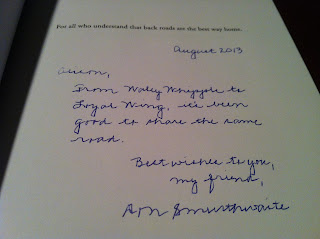 For all who understand that back roads are the best way home.
August 2013
Alison,
From Waley Whipple to
Loyal Wing, it's been
good to share the same
road.
Best wishes to you,
my friend,
Smurthwaite